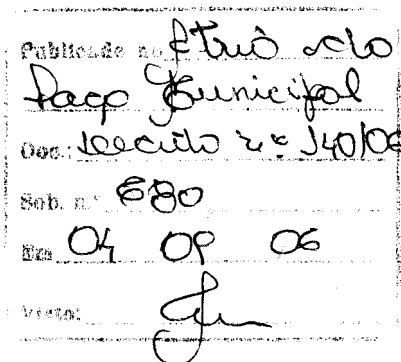 Publicado no Átrio do
Paço Municipal
Doc.: Decreto nº 140/06
Sob. n.º 680
Em 04 09 06
Visto: